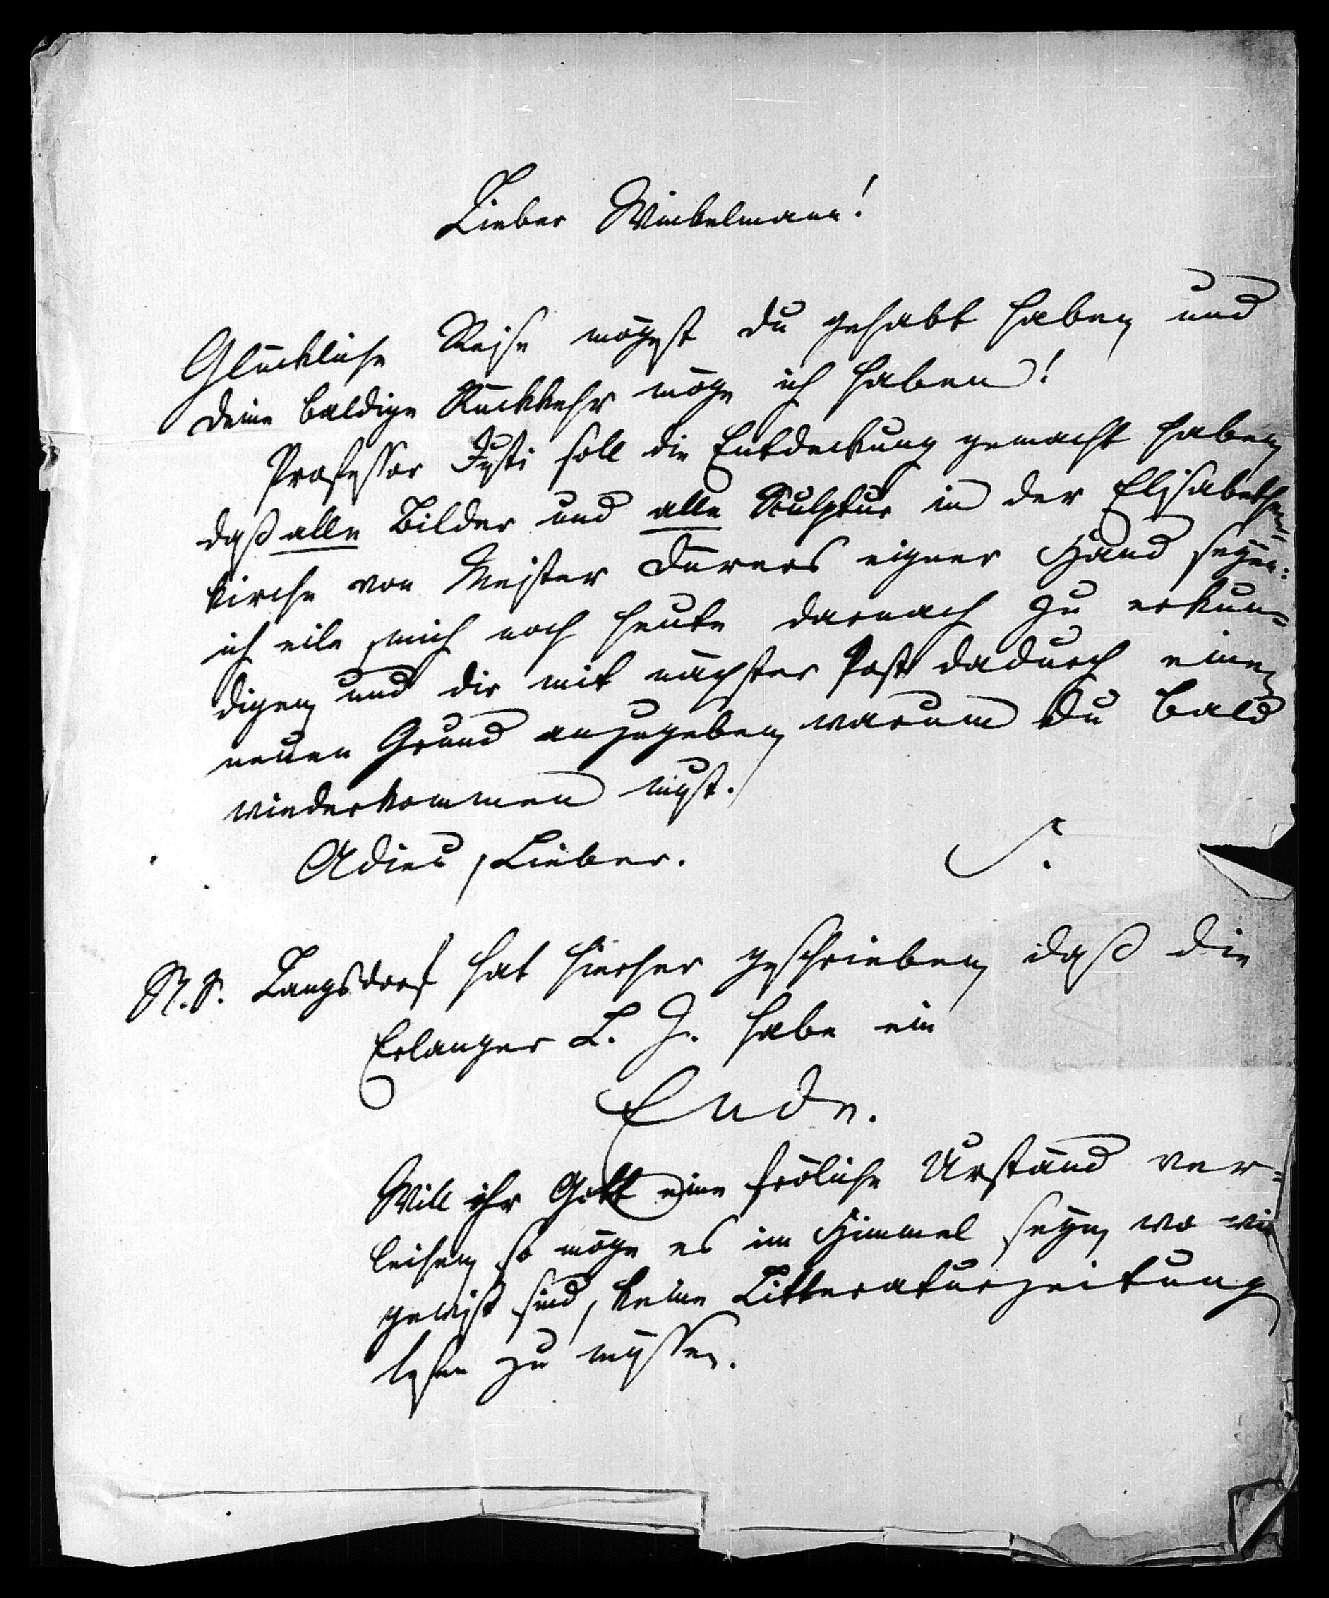 Lieber Winkelmann!
Glückliche Reise mögest du gehabt haben und
deine baldige Rückkehr möge ich haben!
Professor Justi soll die Entdeckung gemacht haben
daß alle Bilder und alle Sculptur in der Elisabethen-
kirche von Meister Dürers eigner Hand seyen:
ich eile, mich noch heute darnach zu erkun-
digen und dir mit nächster Post dadurch einen
neuen Grund anzugeben warum du bald
wiederkommen mußt.
Adieu, Lieber. S.
N. S. Langsdorf hat hierher geschrieben daß die
Erlanger L. Z. habe ein
Ende.
Will ihr Gott eine fröliche Urständ ver-
leihen so möge es im Himmel seyn wo wir
gewiß sind, keine Litteraturzeitung
lesen zu müssen.